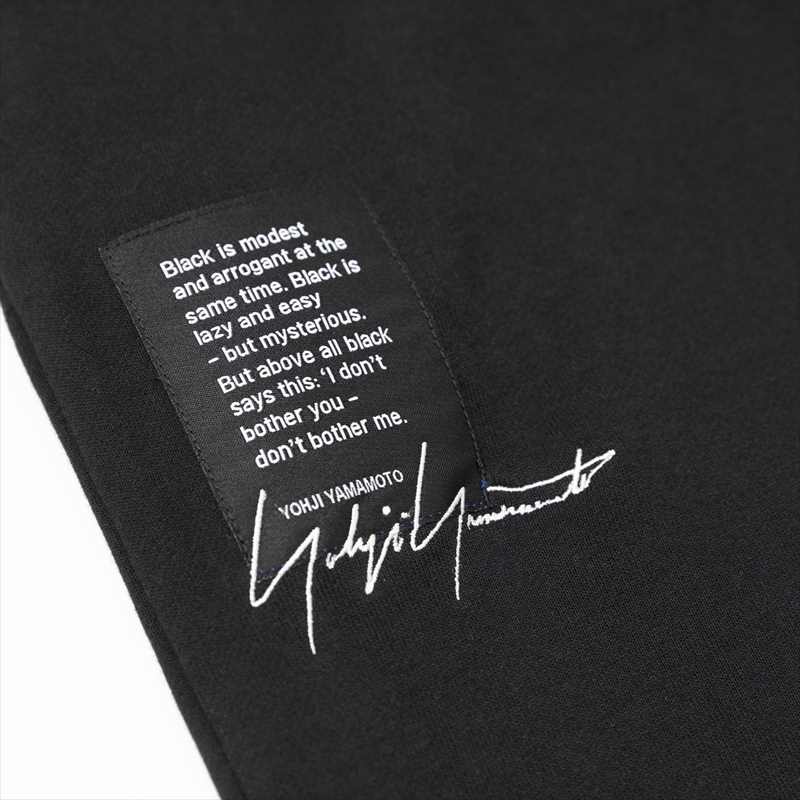 Black is modest
and arrogant at the
same time. Black is
lazy and easy
– but mysterious.
But above all black
says this: ‘I don’t
bother you –
don’t bother me.
YOHJI YAMAMOTO
Yohji Yamamoto